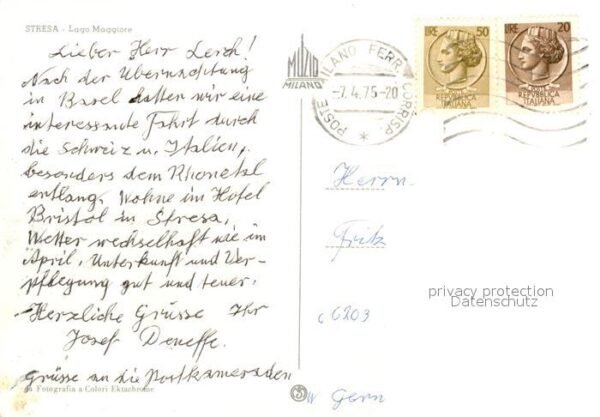 STRESA - Lago Maggiore
Lieber Herr Lerch!
Nach der Übernachtung
in Basel hatten wir eine
interessante Fahrt durch
die Schweiz u. Italien,
besonders dem Rhonetal
entlang. Wohne im Hotel
Bristol in Stresa.
Wetter wechselhaft wie im
April. Unterkunft und Ver-
pflegung gut und teuer.
Herzliche Grüsse Ihr
Josef Deneffe.
Grüsse an die Postkameraden
Fotografia a Colori Ektachrome
MUZIO
MILANO
POSTE MILANO FERR. CORRISP.
-7.4.75-20
LIRE 50
REPVBBLICA
ITALIANA
LIRE 20
REPVBBLICA
ITALIANA
Herrn
Fritz
privacy protection
Datenschutz
6203
W Gern